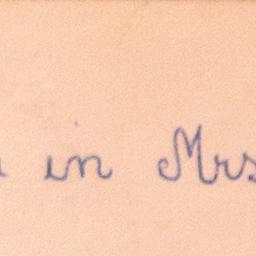 in Mrs